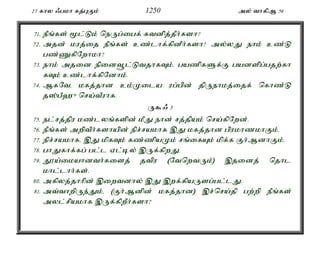 27 கால ஃபமா கத்புகும் 1250 அல் வாகிஆ 56
71. நீங்கள் மூட்டும் நெருப்பைக் கவனித்தீர்களா?
72. அதன் மரத்தை நீங்கள் உண்டாக்கினீர்களா? அல்லது நாம் உண்டு
பண்ணுகிறோமா?
73. நாம் அதனை நினைவூட்டுவதாகவும், பயணிகளுக்கு பயனளிப்பதற்கா
கவும் உண்டாக்கினோம்.
74. ஆகவே, மகத்தான உம்முடைய ரப்பின் திருநாமத்தைக் கொண்டு
தஸ்பீஹு செய்வீராக.
ருகூஃ 3
75. நட்சத்திர மண்டலங்களின் மீது நான் சத்தியம் செய்கிறேன்.
76. நீங்கள் அறிவீர்களாயின் நிச்சயமாக இது மகத்தான பிரமாணமாகும்.
77. நிச்சயமாக, இது மிகவும் கண்ணியமும் சங்கையும் மிக்க குர்ஆனாகும்.
78. பாதுகாக்கப் பட்ட ஏட்டில் இருக்கிறது.
79. தூய்மையானவர்களைத் தவிர (வேறெவரும்) இதனைத் தொட
மாட்டார்கள்.
80. அகிலத்தாரின் இறைவனால் இது இறக்கியருளப்பட்டது.
81. அவ்வாறிருந்தும், (குர்ஆனின் மகத்தான) இச்செய்தி பற்றி நீங்கள்
அலட்சியமாக இருக்கிறீர்களா?